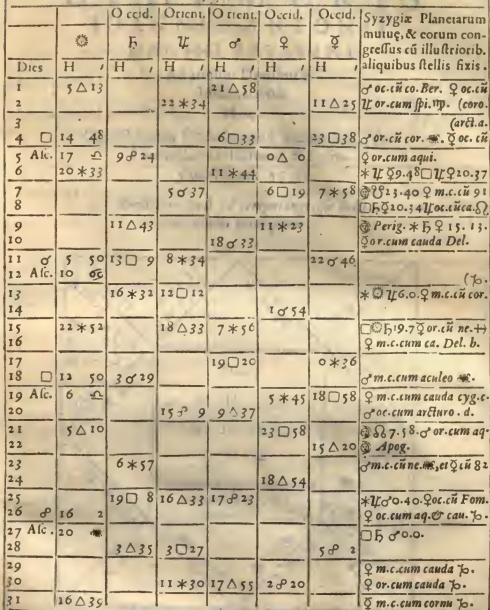 Occid. Orient. Orient. Occid. Occid. Syzygiæ Planetarum
mutuę, & eorum con-
☼ ♄ ♃ ♂ ♀ ☿ gressus cū illustriorib.
Dies H ′ H ′ H H ′ H H ′ aliquibus stellis fixis.
1 5△13 21△58 ♂ oc.cū co. Ber. ♀ oc.cū
2 22*34 11△25 ♃ or.cum spi.♍. (coro.
3 (arct.a.
4 □ 14 48 6□33 23□38 ♂ or.cū cor. ☿ oc. cū
5 Asc. 17 ♎ 9☍24 0△0 ♀ or.cum aqui.
6 20*33 11*44 *♃☿9.48□♃♀20.37
7 5☌37 6□19 7*58 ☋23.40 ♀ m.c.cū 91
8 □♄♀20.34♃oc.cūca.♌
9 11△43 11*23 Perig. *♄♃♀ 15. 13.
10 18☌33 ♀or.cum cauda Del.
11 ☌ 5 50 13□9 8*34 22☌46
12 Asc. 10 ♋ (♑.
13 16*32 12□12 *☼♃6.0.♀ m.c.cū cor.
14 1☌54
15 22*52 18△33 7*56 □☼♄19.7♀or.cū ne.♐
16 ♀ m.c.cum ca. Del. b.
17 19□20 0*36
18 □ 12 50 3☌29 ♂m.c.cum aculeo
19 Asc. 6 ♎ 5*45 18□58 ♀ m.c.cum cauda cyg.c-
20 15☍9 9△37 ♂oc.cum arcturo.d.
21 5△10 23□58 ☊7.58.♂ or.cum aq-
22 15△20 Apog.
23 6*57 ♂m.c.cū ne. et ☿cū 82
24 18△54
25 19□8 16△33 17☍23 *♃♂0.40.♀oc.cū Fom.
26 ☍ 16 2 ♀ oc.cum aq.& cau. ♑.
27 Asc. 20 □♄♂0.0.
28 3△35 3□27 5☍2
29 ♀ m.c.cum cauda ♑.
30 11*30 17△55 2☍20 ♀ or.cum cauda ♑.
31 16△39 ☿ m.c.cum cornu ♑.